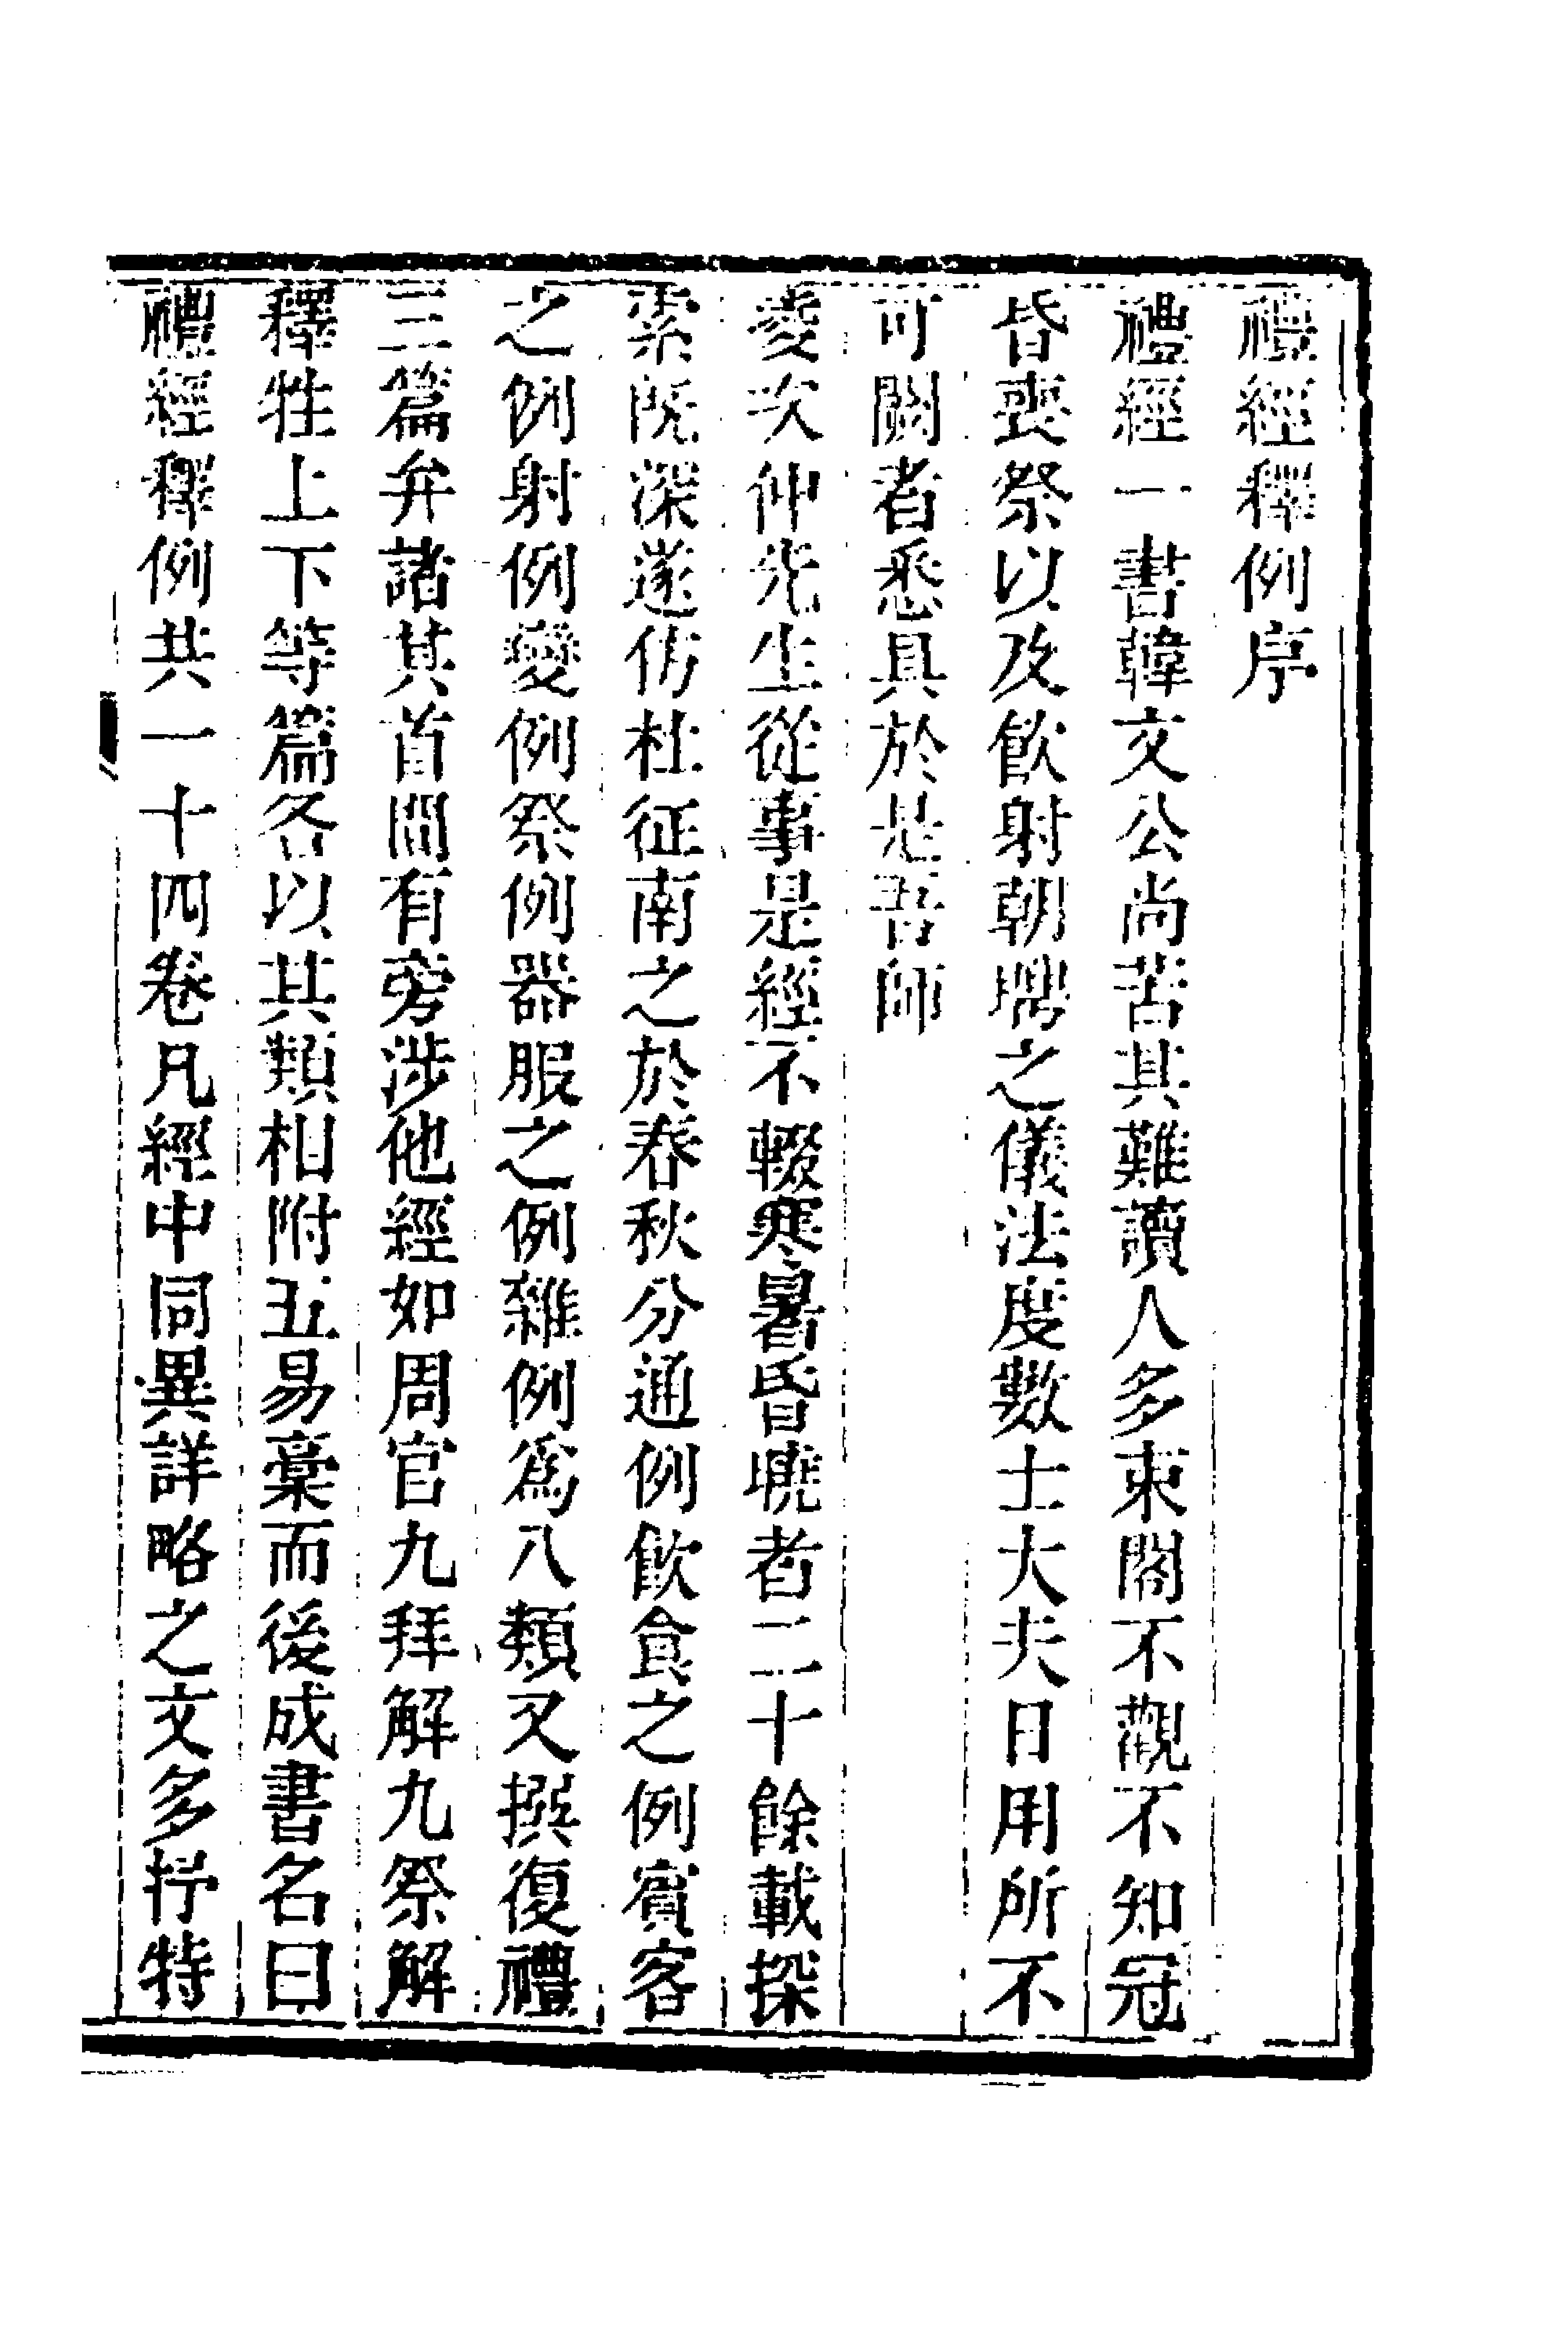 禮經釋例序
禮經一書韓文公尚苦其難讀人多束閣不觀不知冠
昏喪祭以及飲射朝聘之儀法度數士大夫日用所不
可闕者悉具於是吾師
淩次仲先生從事是經不輟寒暑昏曉者二十餘載探
索既深遂仿杜征南之於春秋分通例飲食之例賓客
之例射例變例祭例器服之例雜例爲八類又撰復禮
三篇弁諸其首間有旁涉他經如周官九拜解九祭解
釋牲上下等篇各以其類相附五易稾而後成書名曰
禮經釋例共一十四卷凡經中同異詳略之文多抒特